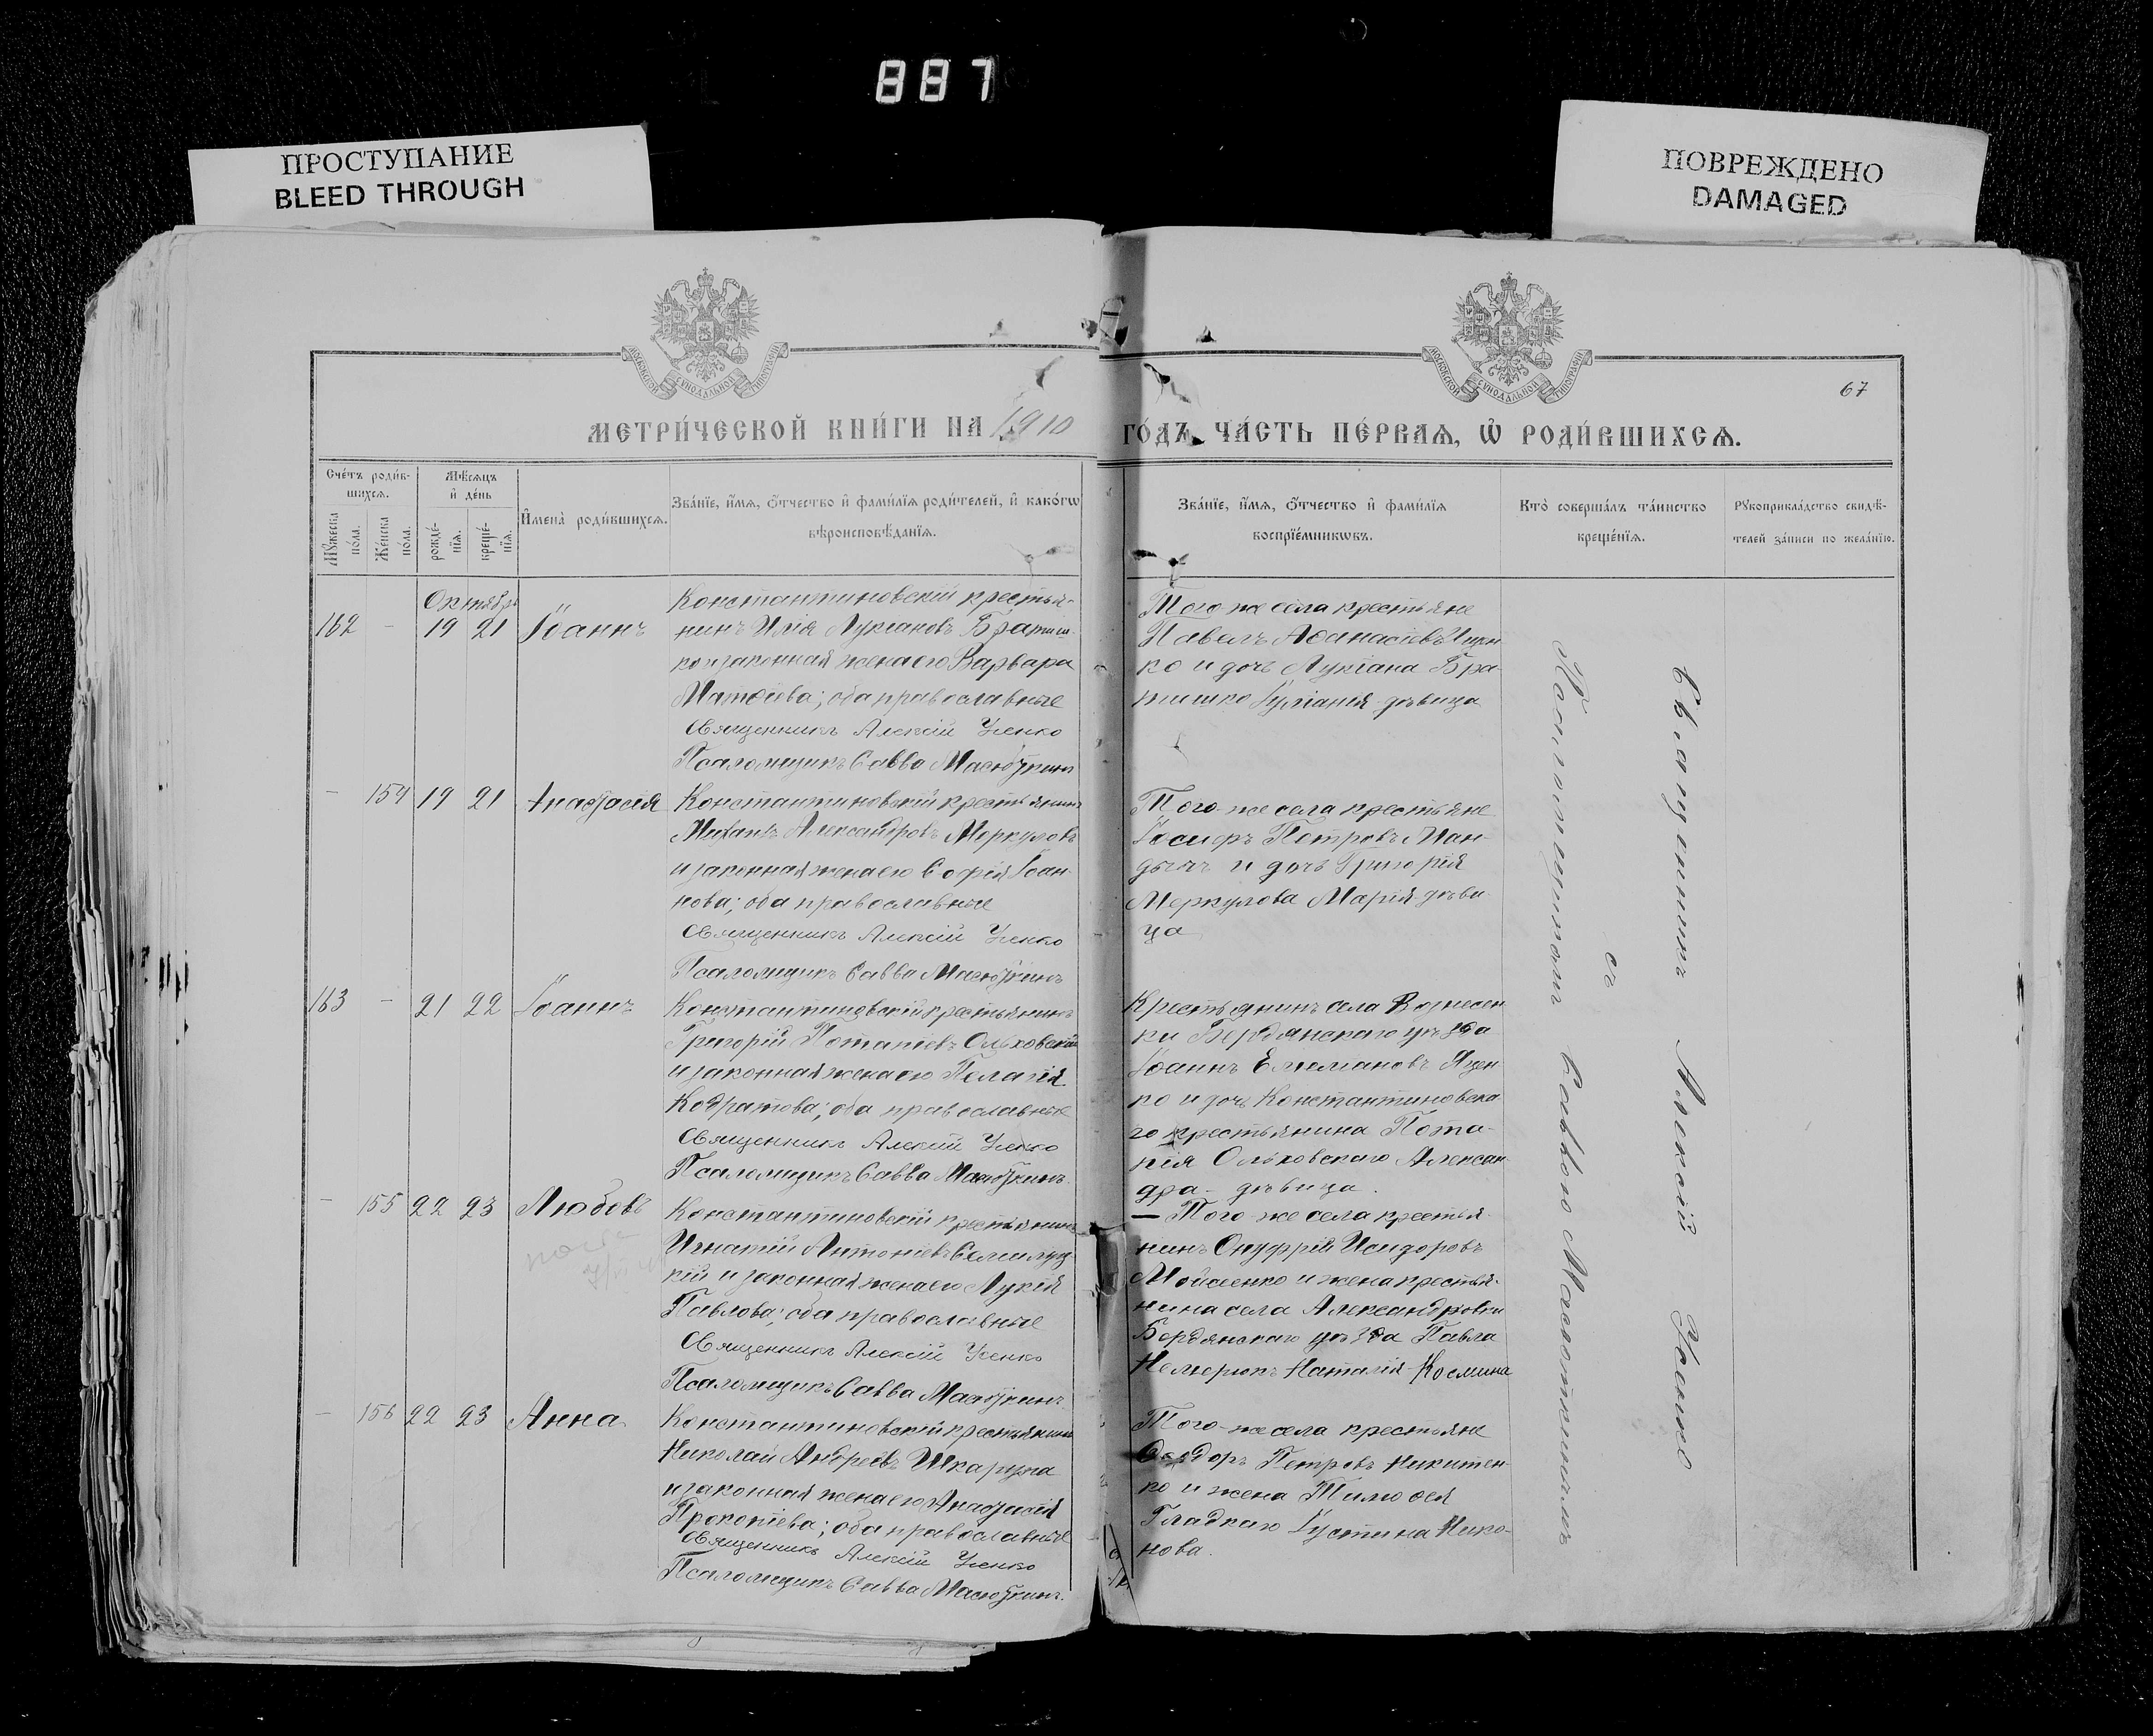 887
ПРОСТУПАНИЕ
BLEED THROUGH
ПОВРЕЖДЕНО
DAMAGED
МОСКОВСКОЙ СѴНОДАЛЬНОЙ ТИПОГРАФІИ
МОСКОВСКОЙ СѴНОДАЛЬНОЙ ТИПОГРАФІИ
67
МЕТРИ́ЧЕСКОЙ КНИ́ГИ НА 1910 ГО́ДЪ, ЧА́СТЬ ПЕ́РВАѦ, Ѡ҆ РОДИ́ВШИХСѦ.
Сче́тъ роди́в-
шихсѧ.
Мꙋ́жеска по́ла.
Же́нска по́ла.
Мѣ́сѧцъ
и҆ де́нь
рожде́-
нїѧ.
креще́-
нїѧ.
И҆мена̀ роди́вшихсѧ.
Зва́нїе, и҆́мѧ, ѻ҆́тчество и҆ фами́лїѧ роди́телей, и҆ како́гѡ
вѣроисповѣ́данїѧ.
Зва́нїе, и҆́мѧ, ѻ҆́тчество и҆ фами́лїѧ
воспрїе́мникѡвъ.
Кто̀ соверша́лъ та́инство
креще́нїѧ.
Рꙋкоприкла́дство свидѣ́-
телей за́писи по жела́нїю.
Октябрь
162 - 19 21 Іоаннъ
Константиновскій крестья-
нинъ Илія Лукіановъ Братиш-
ко и законная жена его Варвара
Матѳіева; оба православные
Священникъ Алексій Усенко
Псаломщикъ Савва Масюткинъ
Того-же села крестьяне
Павелъ Аѳанасіевъ
ко и дочь Лукіана Бра-
тишко Іуліанія-дѣвица
- 154 19 21 Анастасія
Константиновскій крестьянинъ
Михаилъ Александровъ Меркуловъ
и законная жена его Софія Іоан-
нова; оба православные
Священникъ Алексій Усенко
Псаломщикъ Савва Масюткинъ
Того-же села крестьяне
Іосифъ Петровъ Ман-
и дочь Григорія
Меркулова Марія-дѣви-
ца
163 - 21 22 Іоаннъ
Константиновскій крестьянинъ
Григорій Потапіевъ Ольховскій
и законная жена его Пелагія
Кодратова; оба православные
Священникъ Алексій Усенко
Псаломщикъ Савва Масюткинъ
Крестьянинъ села Вознесен
ки Бердянскаго уѣзда
Іоаннъ Яцен-
ко и дочь Константиновска-
го крестьянина Пота-
пія Ольховскаго Алексан-
дра - дѣвица.
- 155 22 23 Любовь
Константиновскій крестьянинъ
Игнатій Антоніевъ Семилуц-
кій и законная жена его Лукія
Павлова; оба православные
Священникъ Алексій Усенко
Псаломщикъ Савва Масюткинъ
— Того-же села крестья-
нинъ Онуфрій Исидоровъ
Мойсеенко и жена крестья-
нина села Александровки
Бердянскаго уѣзда Павла
Немерюкъ Наталія Космина
- 156 22 23 Анна
Константиновскій крестьянинъ
Николай Андреевъ Шкарупа
и законная жена его Анастасія
Прокопіева; оба православные
Священникъ Алексій Усенко
Псаломщикъ Савва Масюткинъ.
Того-же села крестьяне
Ѳеодоръ Петровъ Никитен-
ко и жена Тимоѳея
Гладкаго Іустина Нико-
нова.
Священникъ Алексій Усенко
съ
Псаломщикомъ Саввою Масюткинымъ